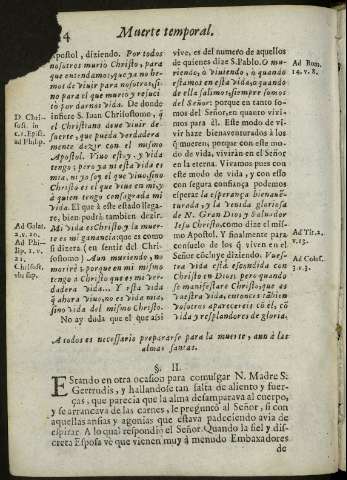 4 Muerte temporal.
Apostol, diziendo. Por todos
nosotros murio Christo, para
que entendamos, que ya no he-
mos de vivir para nosotros, si-
no para el que murio y resuci-
tò por darnos vida. De donde
infiere S. Iuan Chrisostomo, q̃
el Christiano deve vivir de
suerte, que pueda verdadera
mente dezir con el mismo
Apostol. Vivo estoy, y vida
tengo; pero ya ni esta vida es
mia, ni yo soy el que vivo, sino
Christo es el que vive en mi, y
à quien tengo consagrada mi
vida. El que à este estado llega-
re, bien podrà tambien dezir.
Mi vida es Christo, y la muer-
te es mi ganancia: que es como
si dixera (en sentir del Chrisos-
tomo) Aun muriendo, no
morirè; porque en mi mismo
tengo à Christo que es mi ver-
dadera vida... Y esta vida
q̃ ahora vivo, no es vida mia,
sino vida del mismo Christo.
No ay duda que el que assi
D. Chri-
sost. in
c.1. Epist.
ad Philip.
Ad Galat.
2. v. 20.
Ad Phi-
lip. 1. v.
Chrisost.
vbi sup.
vive, es del numero de aquellos
de quienes dize S. Pablo. O mu-
riendo, ò viviendo, ò quando
estamos en esta vida, ò quando
de ella salimos, siempre somos
del Señor: porque en tanto so-
mos del Señor, en quanto vivi-
mos para èl. Este modo de vi-
vir haze bienaventurados à los
q̃ mueren; porque con este mo-
do de vida, vivirán en el Señor
en la eterna. Vivamos pues con
este modo de vida, y con esso
con segura confiança podemos
esperar la esperança bienaven-
turada, y la venida gloriosa
de N. Gran Dios y Salvador
Iesu Christo, como dize el mis-
mo Apostol. Y finalmente para
consuelo de los q̃ viven en el
Señor cõcluye diziendo. Vues-
tra vida està escondida con
Christo en Dios pero quando
se manifestare Christo, que es
vuestra vida, entonces tãbien
vosotros aparecereis cõ èl, cõ
vida y resplandores de gloria.
Ad Rom.
14. v. 8.
Ad Tit. 2.
v. 13.
Ad Coloss.
3. v. 3.
A todos es necessario prepararse para la muerte, aun à las
almas santas.
§. II.
Estando en otra ocasion para comulgar N. Madre S.
Gertrudis, y hallandose tan falta de aliento y fuer-
ças, que parecia que la alma desamparava al cuerpo,
y se arrancava de las carnes, le preguntò al Señor, si con
aquellas ansias y agonias que estava padeciendo avia de
espirar. A lo qual respondiò el Señor. Quando la fiel y dis-
creta Esposa vè que vienen muy à menudo Embaxadores
de